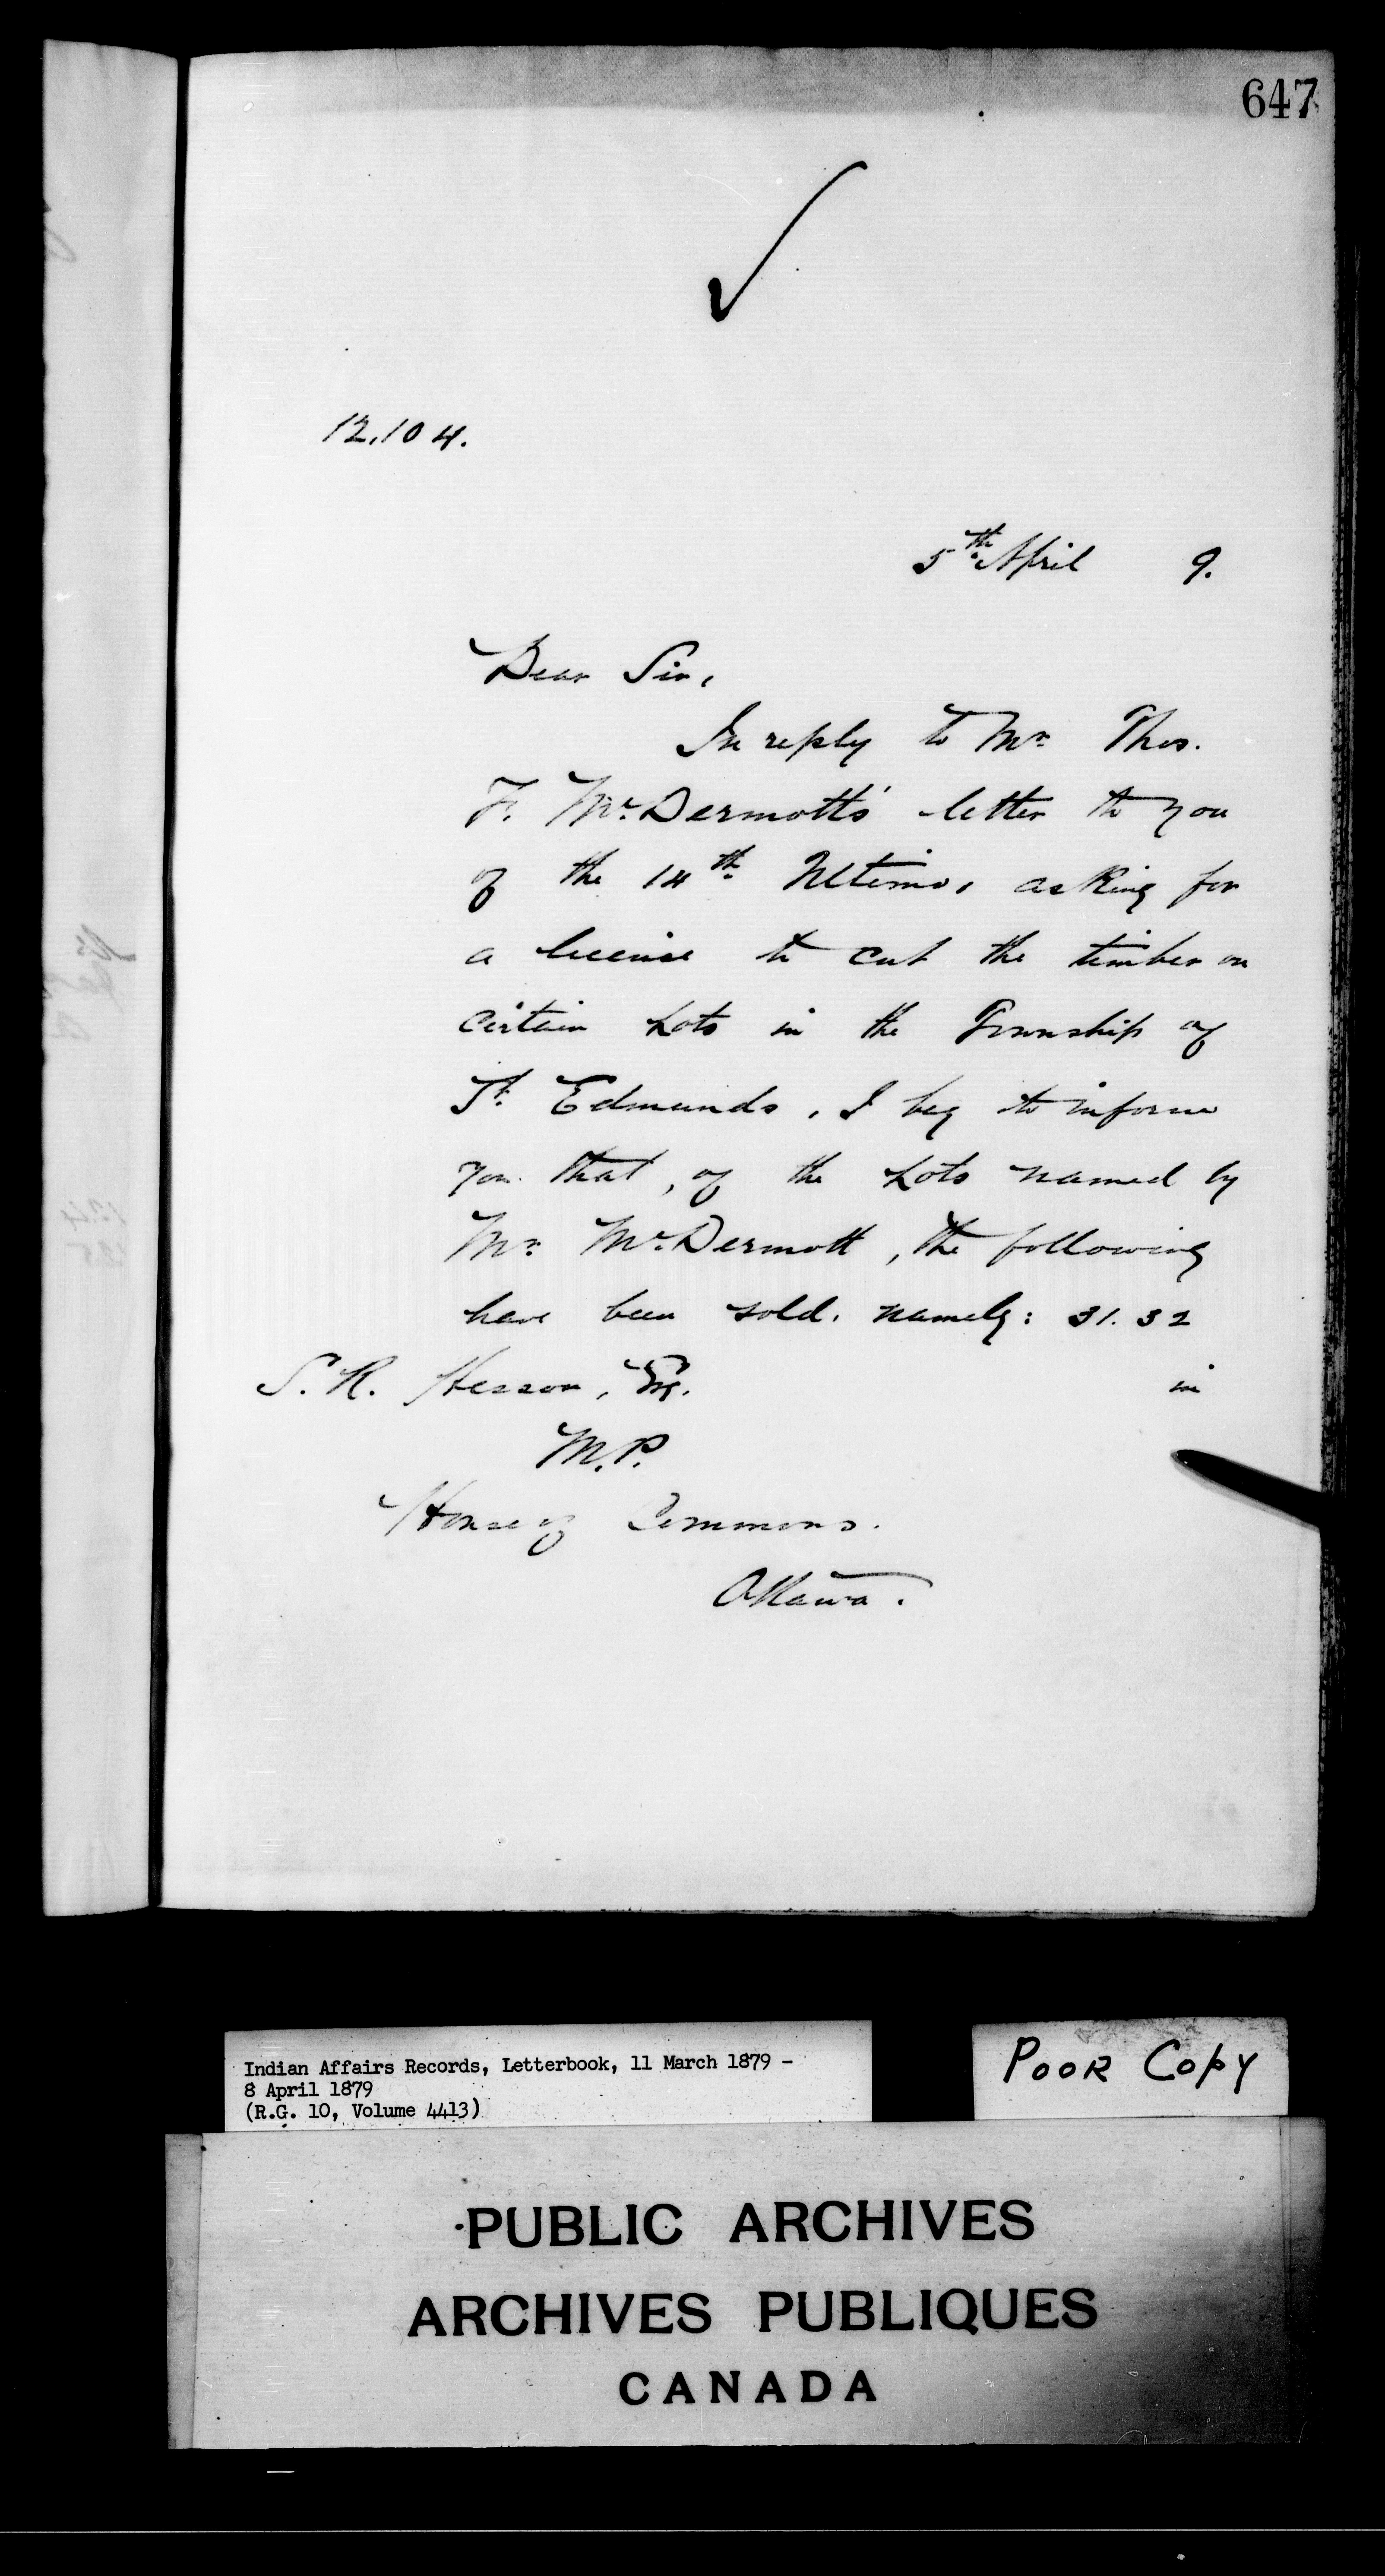 647
12,104.
5th April 9.
Dear Sir,
In reply to Mr. Thos.
F. McDermott's letter to you
of the 14th Ultimo, asking for
a license to cut the timber on
certain Lots in the Township of
St. Edmunds, I beg to inform
you that, of the Lots named by
Mr. McDermott, the following
have been sold, namely: 31. 32
S. R. Hesson, Esq. in
M.P.
House of Commons.
Ottawa.
Indian Affairs Records, Letterbook, 11 March 1879 -
8 April 1879
(R.G. 10, Volume 4413)
POOR COPY
PUBLIC ARCHIVES
ARCHIVES PUBLIQUES
CANADA